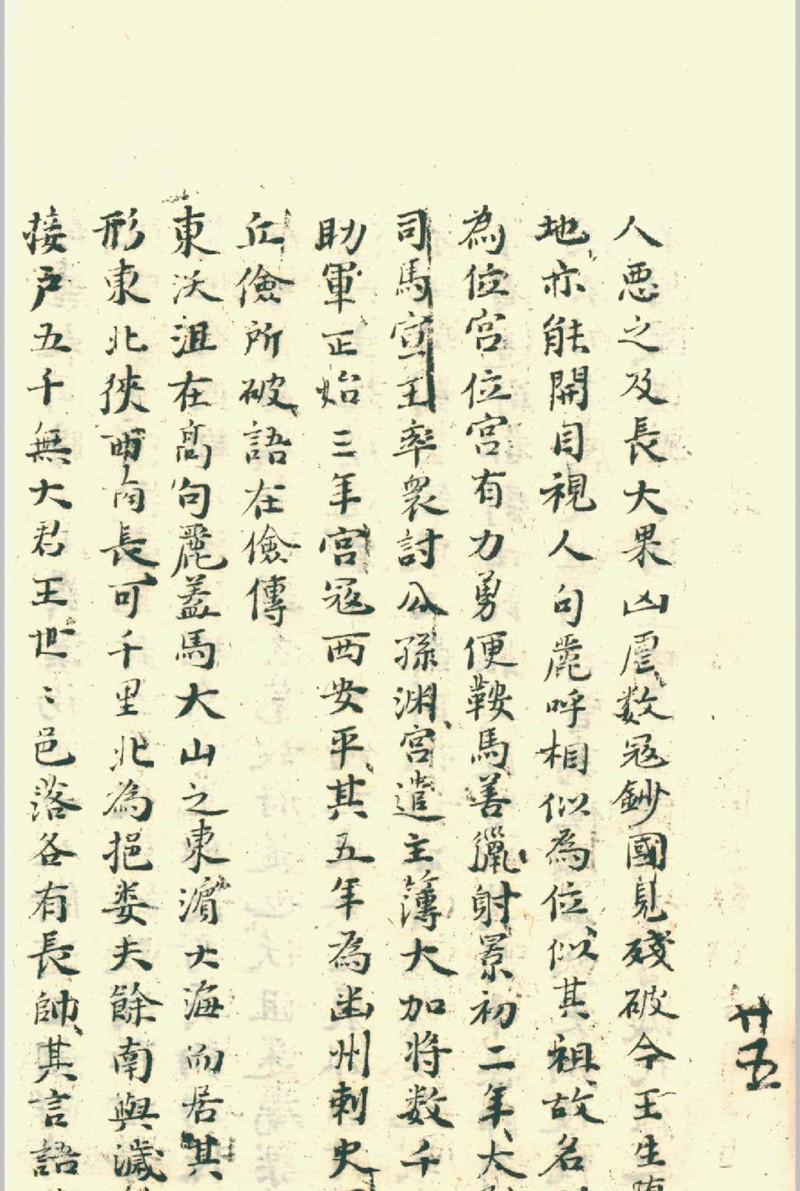 廿五
人悪之及長大果凶虐数冦鈔國見殘破今王生墮
地亦能開目視人句麗呼相似為位似其祖故名
為位宮位宮有力勇便鞍馬善獵射景初二年大
司馬宣王率衆討公孫渊宮遣主簿大加将数千
助軍正始三年宮冦西安平其五年為幽州刺史
丘儉所破語在儉傳
東沃沮在髙句麗盖馬大山之東濵大海而居其
形東北狹西南長可千里北為挹娄夫餘南與濊
接户五千無大君王世〻邑落各有長帥其言語